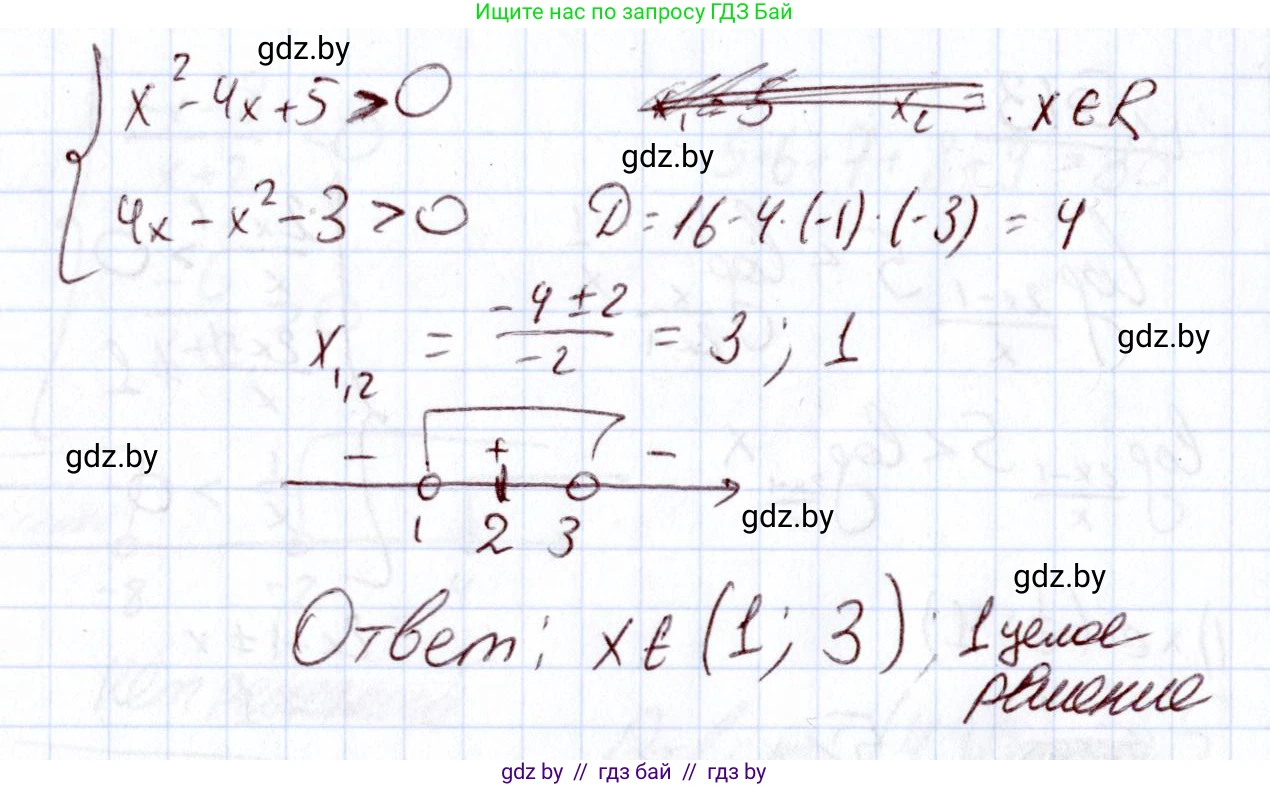 Ищите нас по запросу ГДЗ Бай
gdz.by
x² - 4x + 5 > 0 x₁ = 5 x₂ = x ∈ R
gdz.by
4x - x² - 3 > 0 D = 16 - 4·(-1)·(-3) = 4
x₁,₂ = (-4 ± 2)/(-2) = 3; 1
gdz.by
gdz.by
- + -
1 2 3
gdz.by
gdz.by
Ответ: x ∈ (1; 3); 1 целое
решение
gdz.by // гдз бай // гдз by